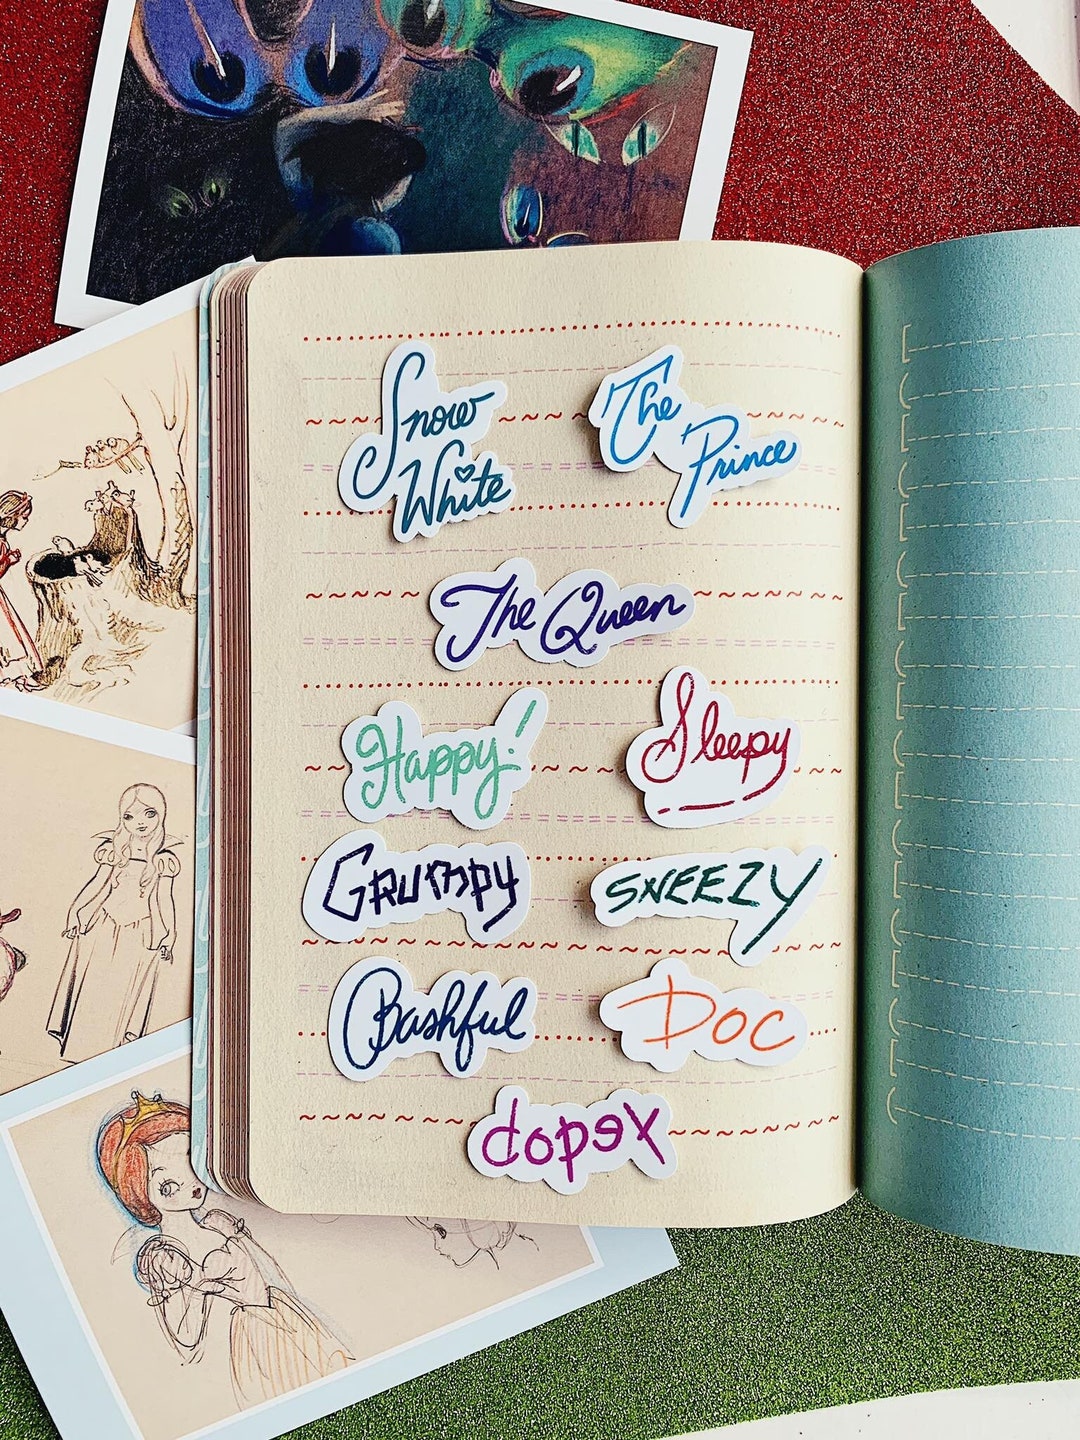 Snow
White
The
Prince
The Queen
Happy!
Sleepy
Grumpy
SNEEZY
Bashful
DOC
dopey